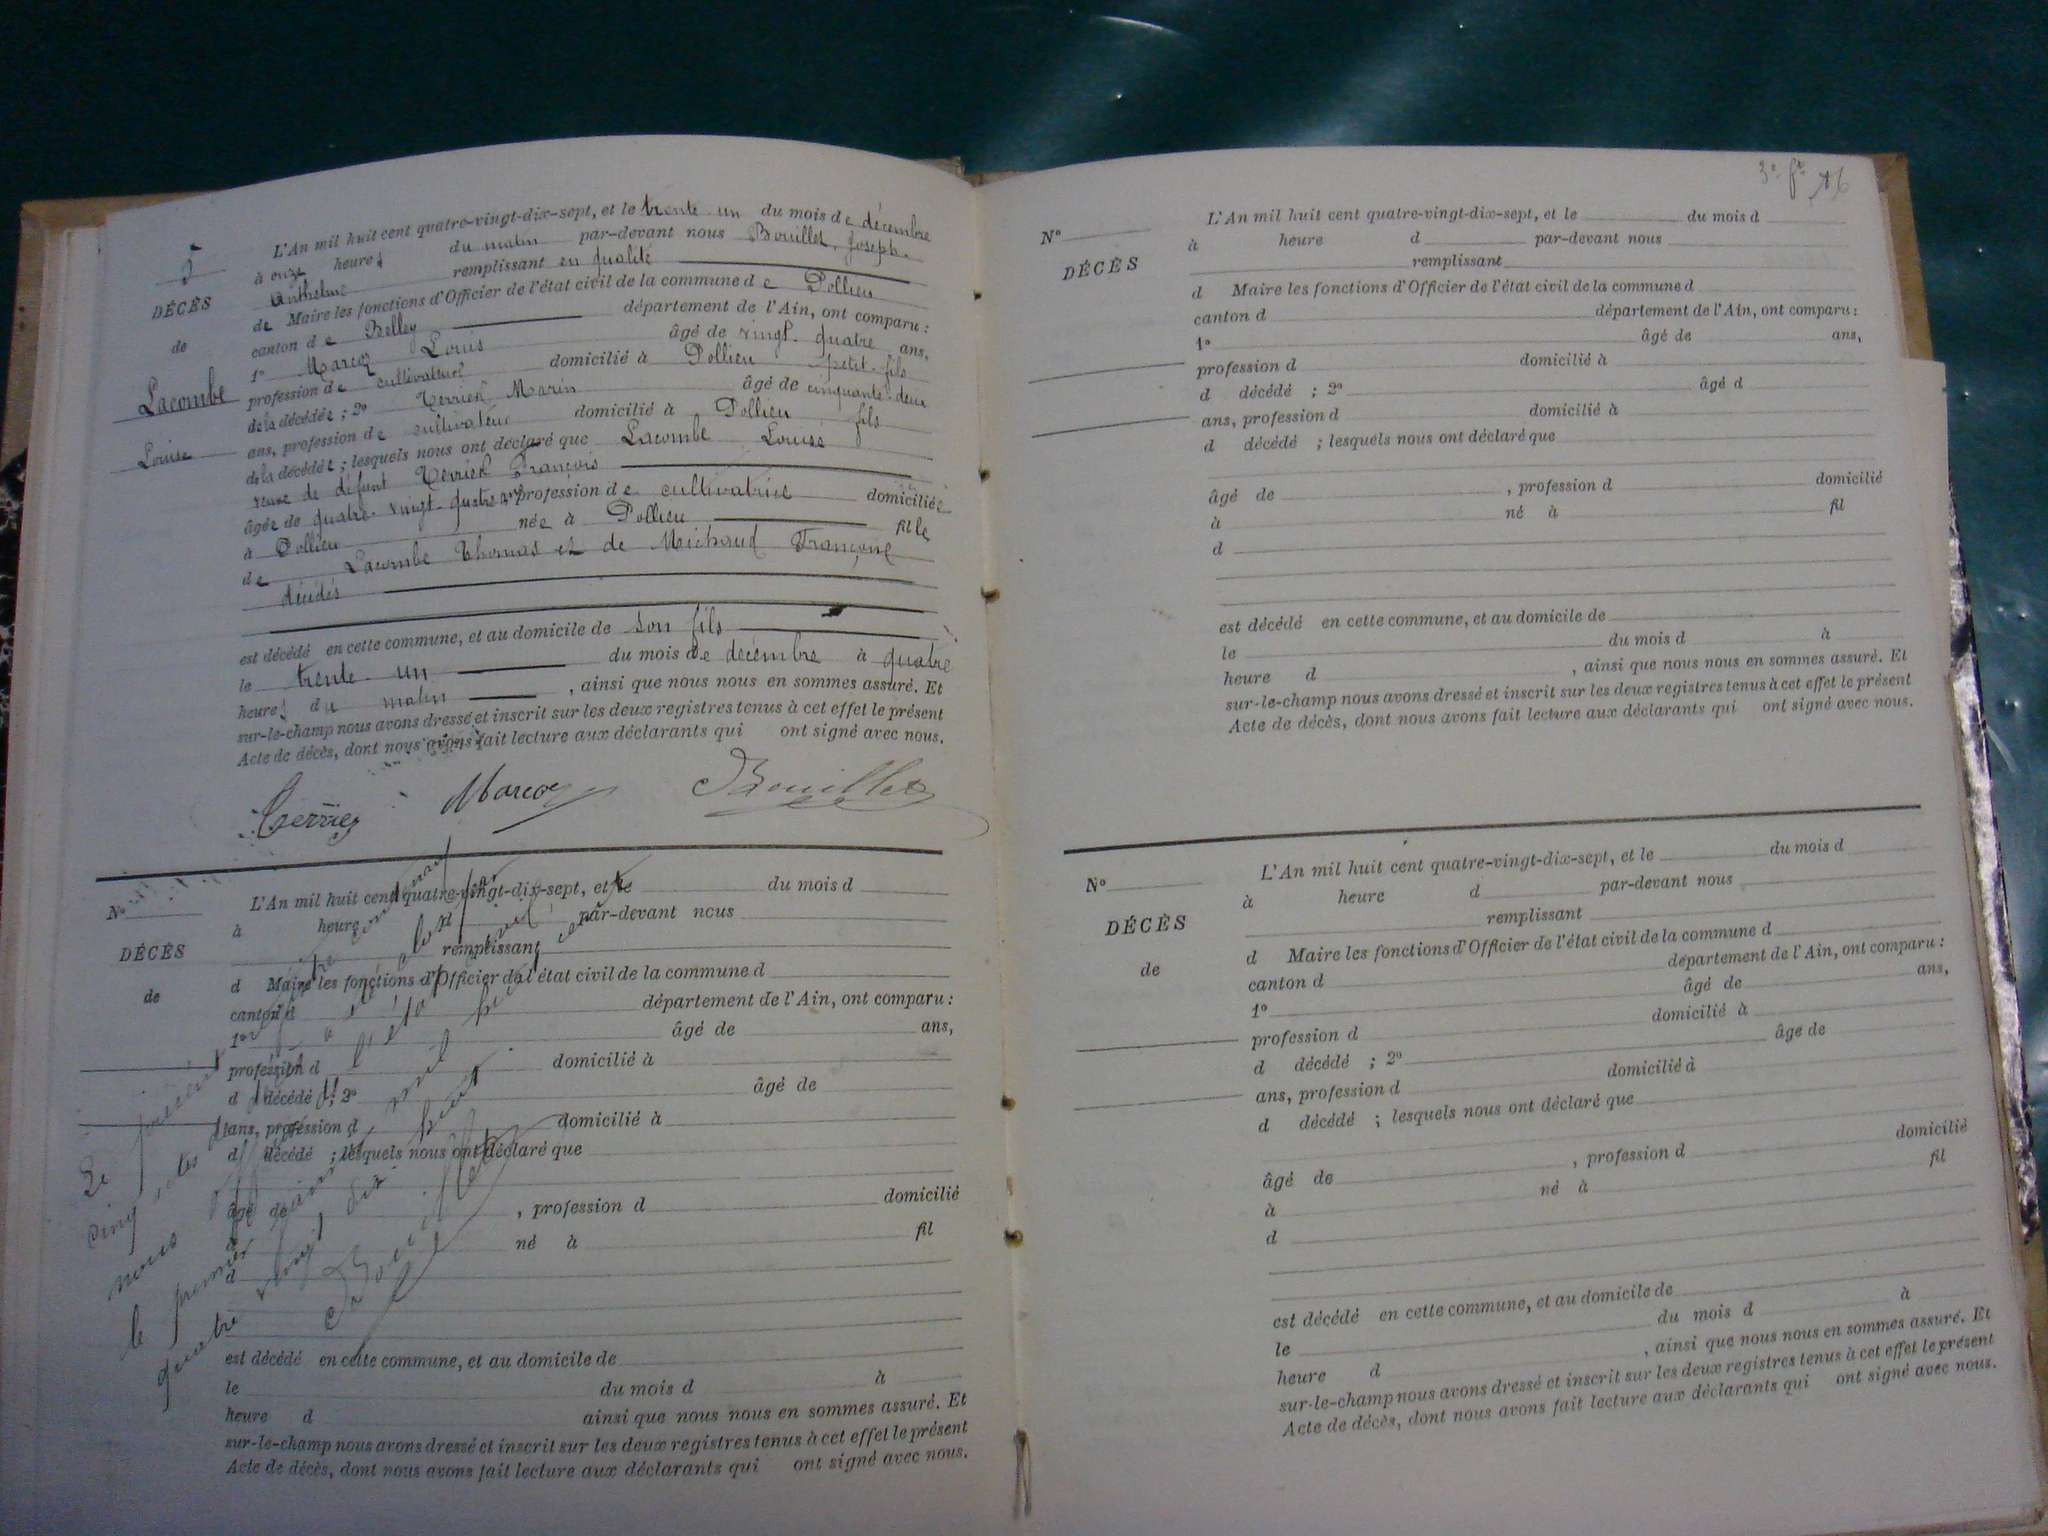 5
DÉCÈS
de
Lacombe
Louise
L'An mil huit cent quatre-vingt-dix-sept, et le trente un du mois de décembre
à onze heures du matin par-devant nous Bouillet, Joseph.
Anthelme remplissant en qualité
de Maire les fonctions d'Officier de l'état civil de la commune de Pollieu
canton de Belley département de l'Ain, ont comparu :
1° Marcoz Louis âgé de vingt-quatre ans,
profession de cultivateur domicilié à Pollieu petit-fils
de la décédée ; 2° Marin âgé de cinquante-deux
ans, profession de cultivateur domicilié à Pollieu fils
de la décédée ; lesquels nous ont déclaré que Lacombe Louise
veuve de défunt François
âgée de quatre-vingt-quatre ans profession de cultivatrice domiciliée
à Pollieu née à Pollieu fille
de Lacombe Thomas et de Michaud Françoise
décédés
est décédé en cette commune, et au domicile de son fils
le trente un du mois de décembre à quatre
heures du matin , ainsi que nous nous en sommes assuré. Et
sur-le-champ nous avons dressé et inscrit sur les deux registres tenus à cet effet le présent
Acte de décès, dont nous avons fait lecture aux déclarants qui ont signé avec nous.
Marcoz Bouillet
N°
DÉCÈS
de
L'An mil huit cent quatre-vingt-dix-sept, et le du mois d
à heure d par-devant nous
remplissant
d Maire les fonctions d'Officier de l'état civil de la commune d
canton d département de l'Ain, ont comparu :
1° âgé de ans,
profession d domicilié à
d décédé ; 2° âgé de
ans, profession d domicilié à
d décédé ; lesquels nous ont déclaré que
âgé de , profession d domicilié
à né à fil
d
est décédé en cette commune, et au domicile de
le du mois d à
heure d ainsi que nous nous en sommes assuré. Et
sur-le-champ nous avons dressé et inscrit sur les deux registres tenus à cet effet le présent
Acte de décès, dont nous avons fait lecture aux déclarants qui ont signé avec nous.
Le présent
cinq actes
nous
le premier
quatre vingt dix huit
Bouillet
16
N°
DÉCÈS
L'An mil huit cent quatre-vingt-dix-sept, et le du mois d
à heure d par-devant nous
remplissant
d Maire les fonctions d'Officier de l'état civil de la commune d
canton d département de l'Ain, ont comparu :
1° âgé de ans,
profession d domicilié à
d décédé ; 2° âgé d
ans, profession d domicilié à
d décédé ; lesquels nous ont déclaré que
âgé de , profession d domicilié
à né à fil
d
est décédé en cette commune, et au domicile de
le du mois d à
heure d , ainsi que nous nous en sommes assuré. Et
sur-le-champ nous avons dressé et inscrit sur les deux registres tenus à cet effet le présent
Acte de décès, dont nous avons fait lecture aux déclarants qui ont signé avec nous.
N°
DÉCÈS
de
L'An mil huit cent quatre-vingt-dix-sept, et le du mois d
à heure d par-devant nous
remplissant
d Maire les fonctions d'Officier de l'état civil de la commune d
canton d département de l'Ain, ont comparu :
1° âgé de ans,
profession d domicilié à
d décédé ; 2° âge de
ans, profession d domicilié à
d décédé ; lesquels nous ont déclaré que
âgé de , profession d domicilié
à né à fil
d
est décédé en cette commune, et au domicile de
le du mois d à
heure d , ainsi que nous nous en sommes assuré. Et
sur-le-champ nous avons dressé et inscrit sur les deux registres tenus à cet effet le présent
Acte de décès, dont nous avons fait lecture aux déclarants qui ont signé avec nous.